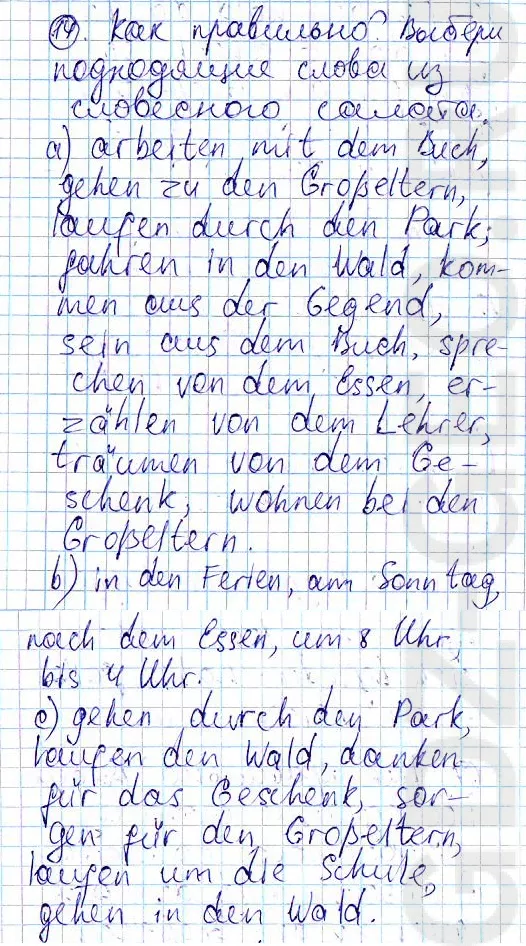 14. Как правильно? Выбери
подходящие слова из
словесного салата.
a) arbeiten mit dem Buch,
gehen zu den Großeltern,
laufen durch den Park,
fahren in den Wald, kom-
men aus der Gegend,
sein aus dem Buch, spre-
chen von dem Essen, er-
zählen von dem Lehrer,
träumen von dem Ge-
schenk, wohnen bei den
Großeltern.
b) in den Ferien, am Sonntag,
nach dem Essen, um 8 Uhr,
bis 4 Uhr.
c) gehen durch den Park,
laufen den Wald, danken
für das Geschenk, sor-
gen für den Großeltern,
laufen um die Schule,
gehen in den Wald.